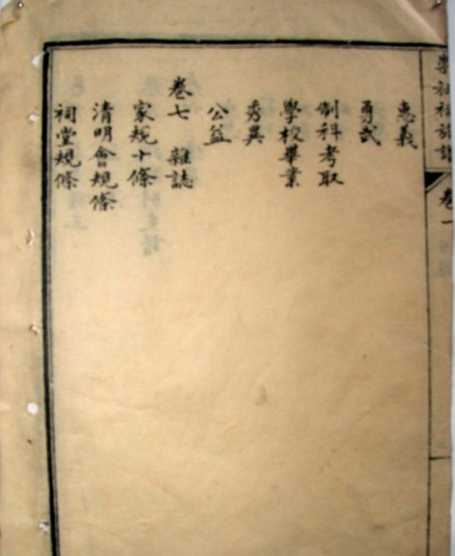 惠義
勇武
制科考取
學校畢業
秀異
公益
卷七 雜誌
家規十條
清明會規條
祠堂規條